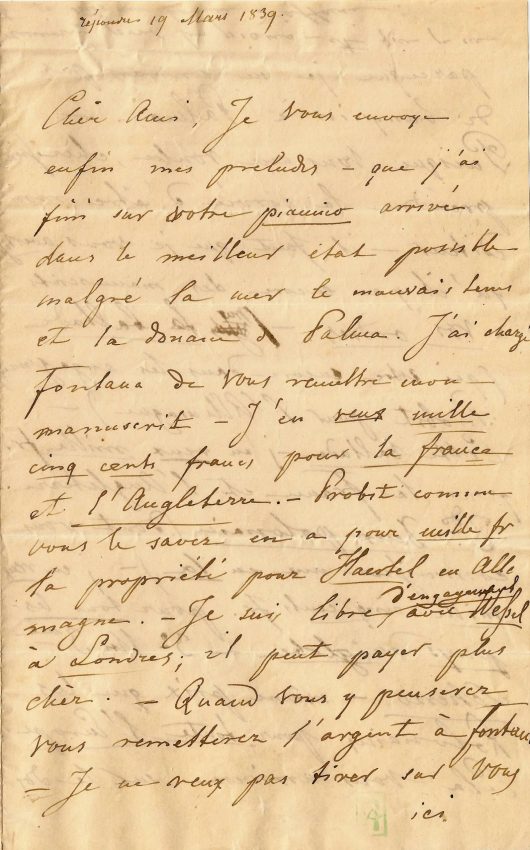 répondu 19 Mars 1839.
Cher Ami, Je vous envoye
enfin mes preludes – que j'ai
fini sur votre pianino arrivé
dans le meilleur état possible
malgré la mer le mauvais tems
et la douane de Palma. J'ai chargé
Fontana de vous remettre mon
manuscrit – J'en veux mille
cinq cents francs pour la france
et l'Angleterre. – Probst comme
vous le savez en a pour mille fr
la propriété pour Haertel en Alle
magne. – Je suis libre d'engagement avec Wessel
à Londres; il peut payer plus
chèr. – Quand vous y penserez
vous remetterez l'argent à fontana
– Je ne veux pas tirer sur vous
ici